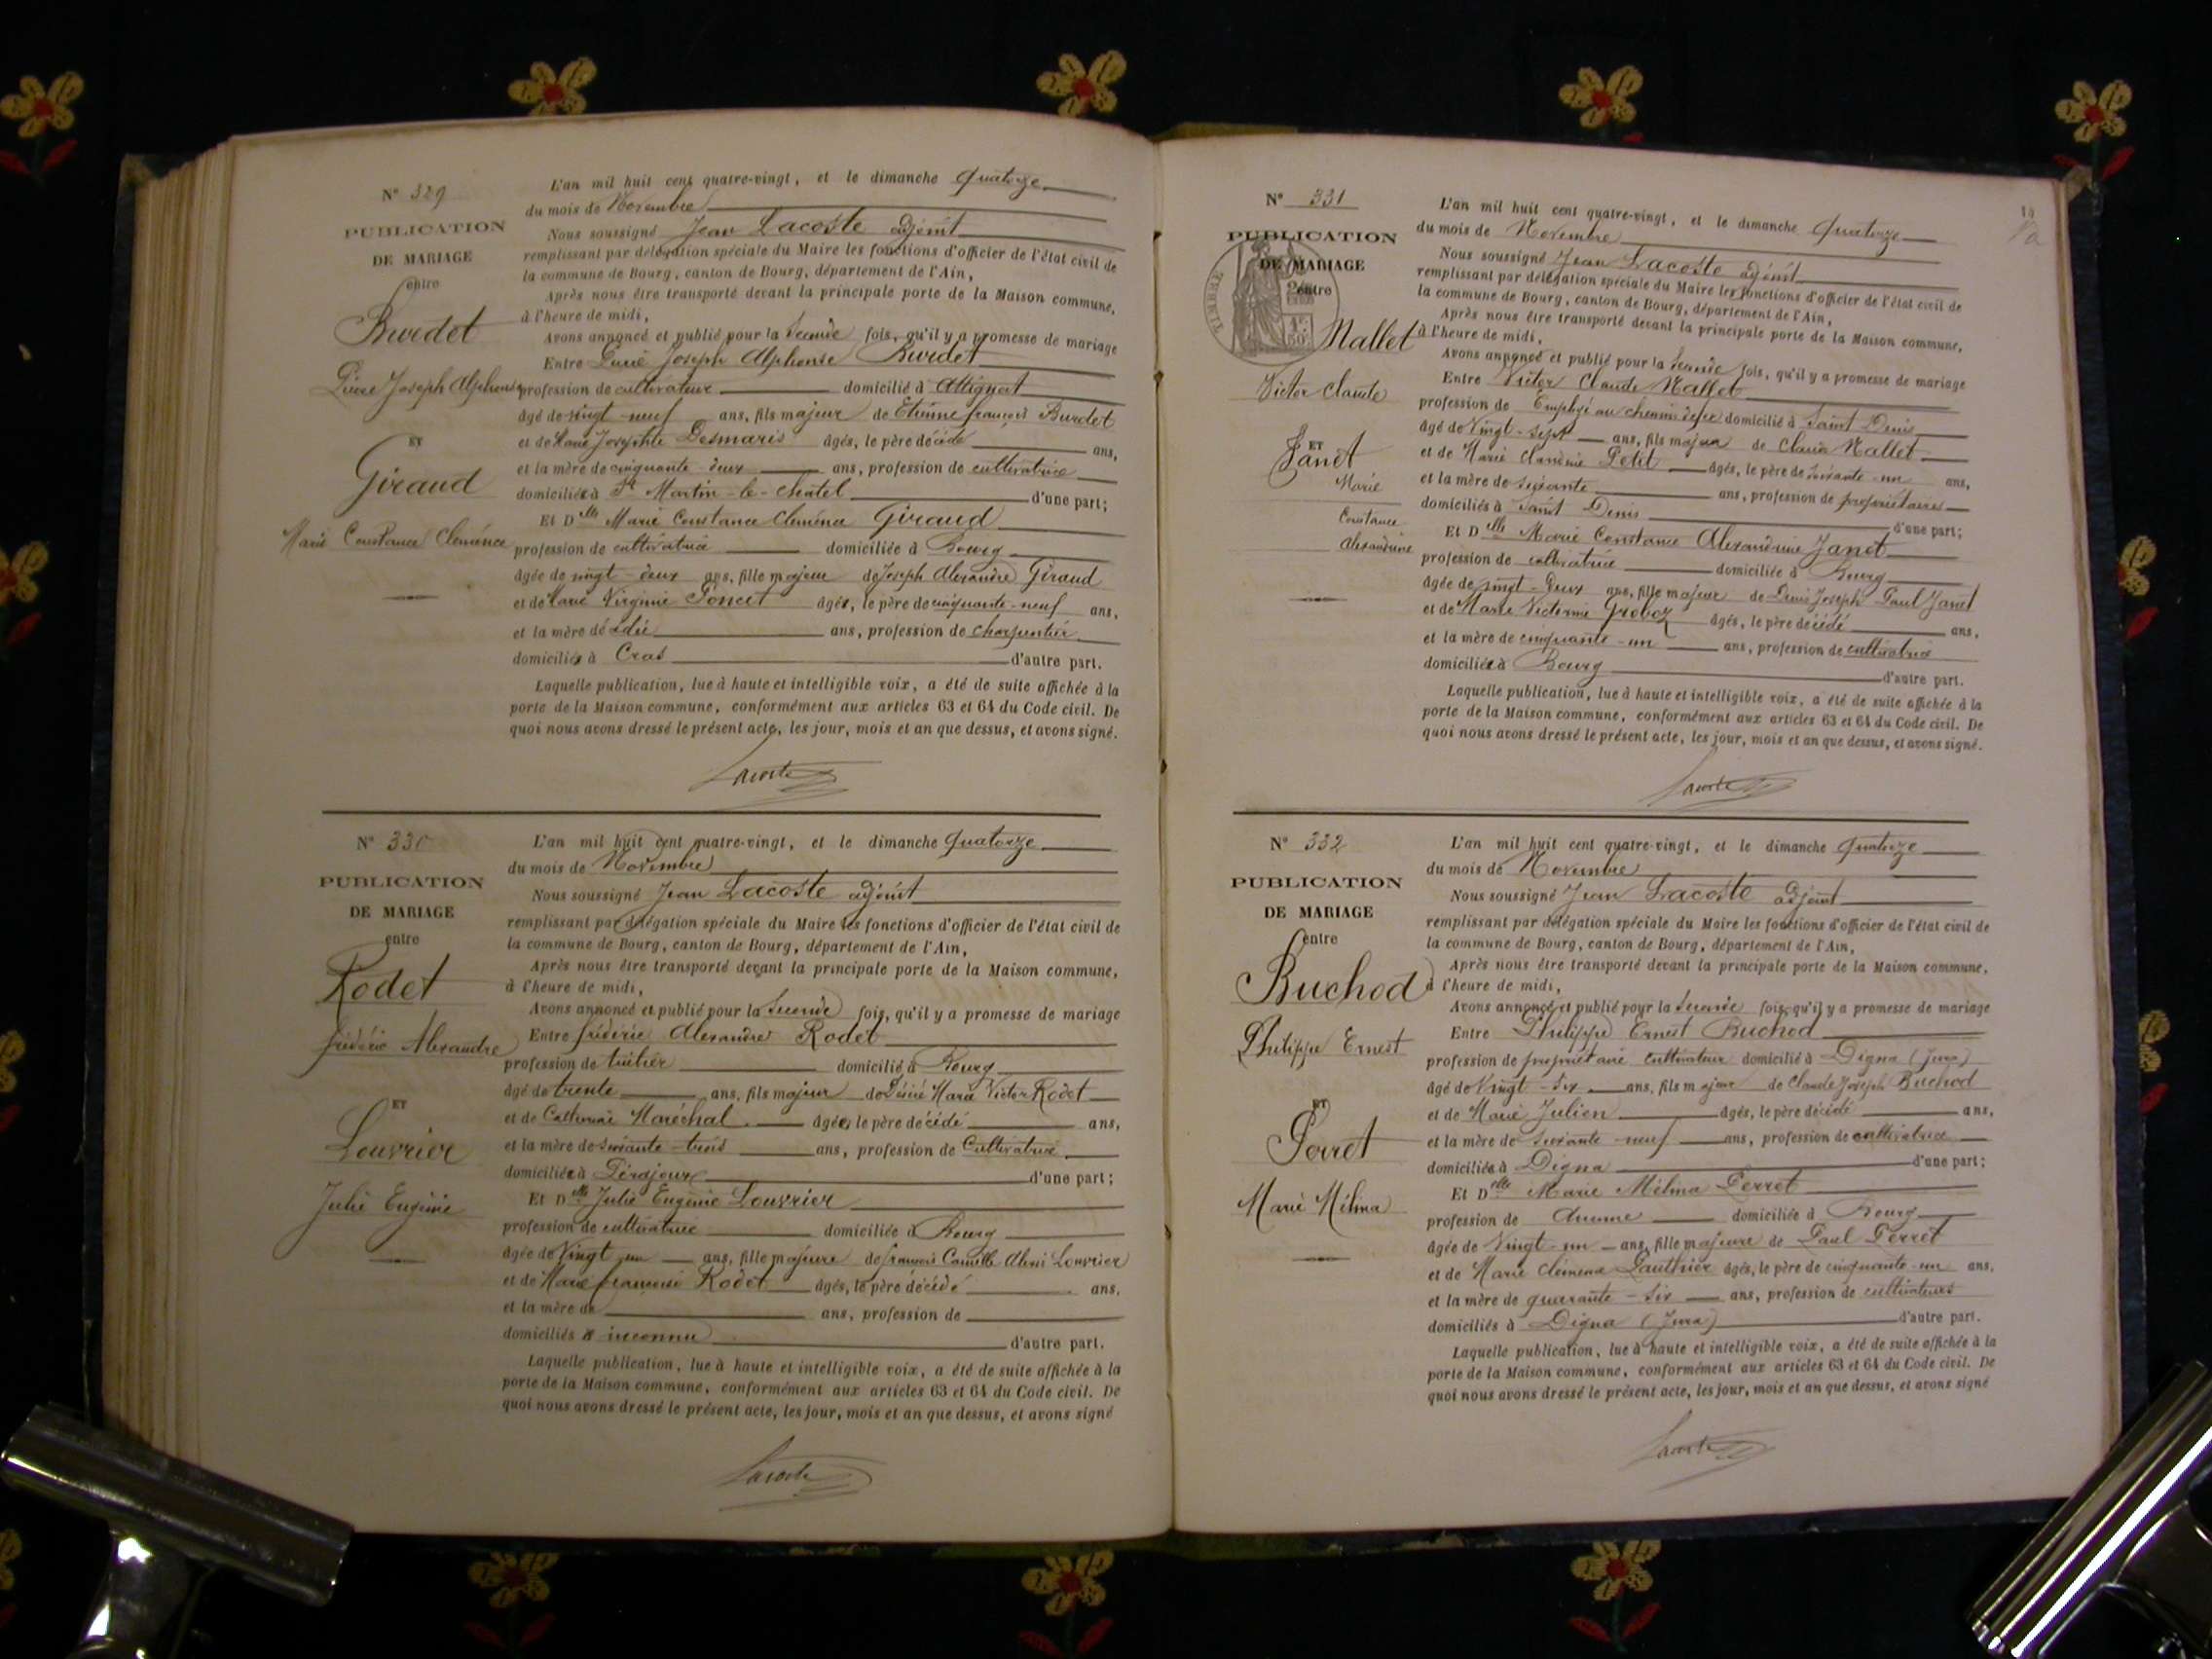 N° 329
PUBLICATION
DE MARIAGE
entre
Burdet
Pierre Joseph Alphonse
ET
Giraud
Marie Constance Clémence
L'an mil huit cent quatre-vingt, et le dimanche quatorze
du mois de Novembre
Nous soussigné Jean Lacoste adjoint
remplissant par délégation spéciale du Maire les fonctions d'officier de l'état civil de
la commune de Bourg, canton de Bourg, département de l'Ain,
Après nous être transporté devant la principale porte de la Maison commune,
à l'heure de midi,
Avons annoncé et publié pour la seconde fois, qu'il y a promesse de mariage
Entre Pierre Joseph Alphonse Burdet
profession de cultivateur domicilié à Attignat
âgé de vingt-neuf ans, fils majeur de Etienne françois Burdet
et de Marie Josephte Desmaris âgés, le père décédé ans,
et la mère de cinquante-deux ans, profession de cultivatrice
domiciliée à St Martin-le-Chatel d'une part;
Et Dlle Marie Constance Clémence Giraud
profession de cultivatrice domiciliée à Bourg
âgée de vingt-deux ans, fille majeure de Joseph Alexandre Giraud
et de Marie Virginie Poncet âgés, le père de cinquante-neuf ans,
et la mère décédée ans, profession de charpentier
domiciliés à Cras d'autre part.
Laquelle publication, lue à haute et intelligible voix, a été de suite affichée à la
porte de la Maison commune, conformément aux articles 63 et 64 du Code civil. De
quoi nous avons dressé le présent acte, les jour, mois et an que dessus, et avons signé.
Lacoste
N° 330
PUBLICATION
DE MARIAGE
entre
Rodet
frédéric Alexandre
ET
Louvrier
Julie Eugénie
L'an mil huit cent quatre-vingt, et le dimanche quatorze
du mois de Novembre
Nous soussigné Jean Lacoste adjoint
remplissant par délégation spéciale du Maire les fonctions d'officier de l'état civil de
la commune de Bourg, canton de Bourg, département de l'Ain,
Après nous être transporté devant la principale porte de la Maison commune,
à l'heure de midi,
Avons annoncé et publié pour la seconde fois, qu'il y a promesse de mariage
Entre frédéric Alexandre Rodet
profession de domicilié à Bourg
âgé de trente ans, fils majeur de Désiré Marie Victor Rodet
et de Catherine Maréchal âgés, le père décédé ans,
et la mère de soixante-trois ans, profession de Cultivatrice
domiciliée à Pérajoux d'une part;
Et Dlle Julie Eugénie Louvrier
profession de cultivatrice domiciliée à Bourg
âgée de Vingt-un ans, fille majeure de françois Camille Alexis Louvrier
et de Marie françoise Rodet âgés, le père décédé ans,
et la mère de ans, profession de
domiciliés à inconnu d'autre part.
Laquelle publication, lue à haute et intelligible voix, a été de suite affichée à la
porte de la Maison commune, conformément aux articles 63 et 64 du Code civil. De
quoi nous avons dressé le présent acte, les jour, mois et an que dessus, et avons signé
Lacoste
N° 331
PUBLICATION
DE MARIAGE
entre
TIMBRE
1F
50c
Mallet
Victor Claude
ET
Janet
Marie
Constance
Alexandrine
L'an mil huit cent quatre-vingt, et le dimanche quatorze
du mois de Novembre
Nous soussigné Jean Lacoste adjoint
remplissant par délégation spéciale du Maire les fonctions d'officier de l'état civil de
la commune de Bourg, canton de Bourg, département de l'Ain,
Après nous être transporté devant la principale porte de la Maison commune,
à l'heure de midi,
Avons annoncé et publié pour la seconde fois, qu'il y a promesse de mariage
Entre Victor Claude Mallet
profession de Employé au chemin de fer domicilié à Saint Denis
âgé de Vingt-sept ans, fils majeur de Claude Mallet
et de Marie Claudine Petit âgés, le père de soixante-un ans,
et la mère de soixante ans, profession de propriétaires
domiciliés à Saint Denis d'une part;
Et Dlle Marie Constance Alexandrine Janet
profession de cultivatrice domiciliée à Bourg
âgée de vingt-deux ans, fille majeure de Denis Joseph Paul Janet
et de Marie Victorine Groboz âgés, le père décédé ans,
et la mère de cinquante-un ans, profession de cultivatrice
domiciliée à Bourg d'autre part.
Laquelle publication, lue à haute et intelligible voix, a été de suite affichée à la
porte de la Maison commune, conformément aux articles 63 et 64 du Code civil. De
quoi nous avons dressé le présent acte, les jour, mois et an que dessus, et avons signé.
Lacoste
N° 332
PUBLICATION
DE MARIAGE
entre
Buchod
Philippe Ernest
ET
Perret
Marie Mélina
L'an mil huit cent quatre-vingt, et le dimanche quatorze
du mois de Novembre
Nous soussigné Jean Lacoste adjoint
remplissant par délégation spéciale du Maire les fonctions d'officier de l'état civil de
la commune de Bourg, canton de Bourg, département de l'Ain,
Après nous être transporté devant la principale porte de la Maison commune,
à l'heure de midi,
Avons annoncé et publié pour la seconde fois, qu'il y a promesse de mariage
Entre Philippe Ernest Buchod
profession de propriétaire cultivateur domicilié à Digna (Jura)
âgé de Vingt-six ans, fils majeur de Claude Joseph Buchod
et de Marie Julien âgés, le père décédé ans,
et la mère de soixante-neuf ans, profession de cultivatrice
domiciliée à Digna d'une part;
Et Dlle Marie Mélina Perret
profession de domiciliée à Bourg
âgée de Vingt-un ans, fille majeure de Paul Perret
et de Marie Clémence Gauthier âgés, le père de cinquante-un ans,
et la mère de quarante-six ans, profession de cultivateurs
domiciliés à Digna (Jura) d'autre part.
Laquelle publication, lue à haute et intelligible voix, a été de suite affichée à la
porte de la Maison commune, conformément aux articles 63 et 64 du Code civil. De
quoi nous avons dressé le présent acte, les jour, mois et an que dessus, et avons signé
Lacoste